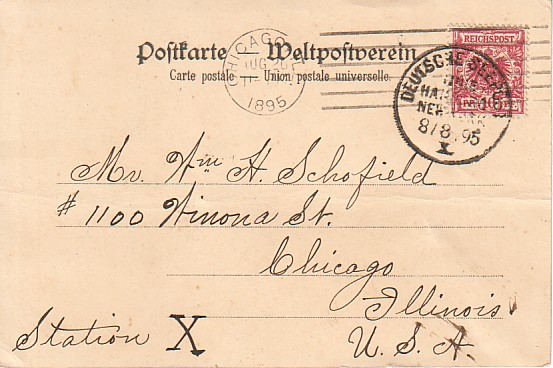 Postkarte – Weltpostverein
Carte postale – Union postale universelle.
CHICAGO, ILL.
AUG 20
11
1895
REICHSPOST
DEUTSCHE SEEPOST
HAMBURG
NEW YORK
8/8 95
X
Mr. Wm H. Schofield
# 1100 Winona St.
Chicago
Illinois
Station X
U. S. A.